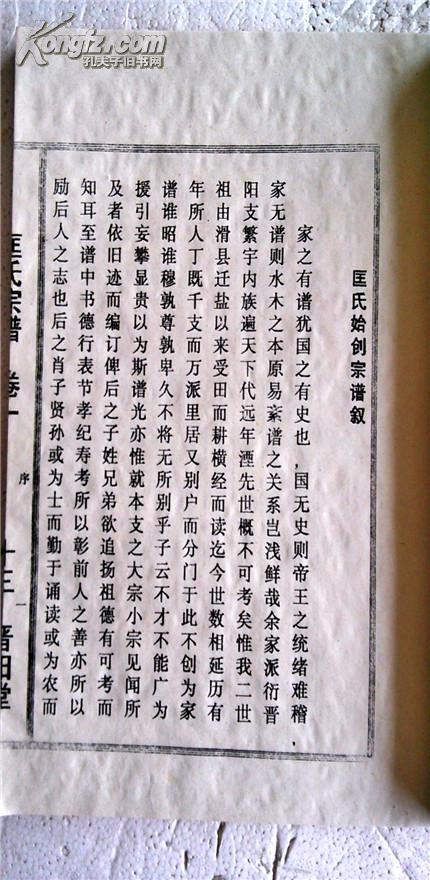 Kongfz.com
孔夫子旧书网
匡氏始创宗谱叙
家之有谱犹国之有史也，国无史则帝王之统绪难稽
家无谱则水木之本原易紊谱之关系岂浅鲜哉余家派衍晋
阳支繁宇内族遍天下代远年湮先世概不可考矣惟我二世
祖由滑县迁盐以来受田而耕横经而读迄今世数相延历有
年所人丁既千支而万派里居又别户而分门于此不创为家
谱谁昭谁穆孰尊孰卑久不将无所别乎子云不才不能广为
援引妄攀显贵以为斯谱光亦惟就本支之大宗小宗见闻所
及者依旧迹而编订俾后之子姓兄弟欲追扬祖德有可考而
知耳至谱中书德行表节孝纪寿考所以彰前人之善亦所以
励后人之志也后之肖子贤孙或为士而勤于诵读或为农而
匡氏宗谱 卷一 序 一 晋阳堂